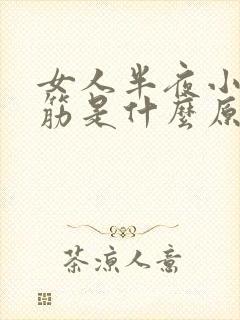 女人半夜小
筋是什麼原
茶凉人意